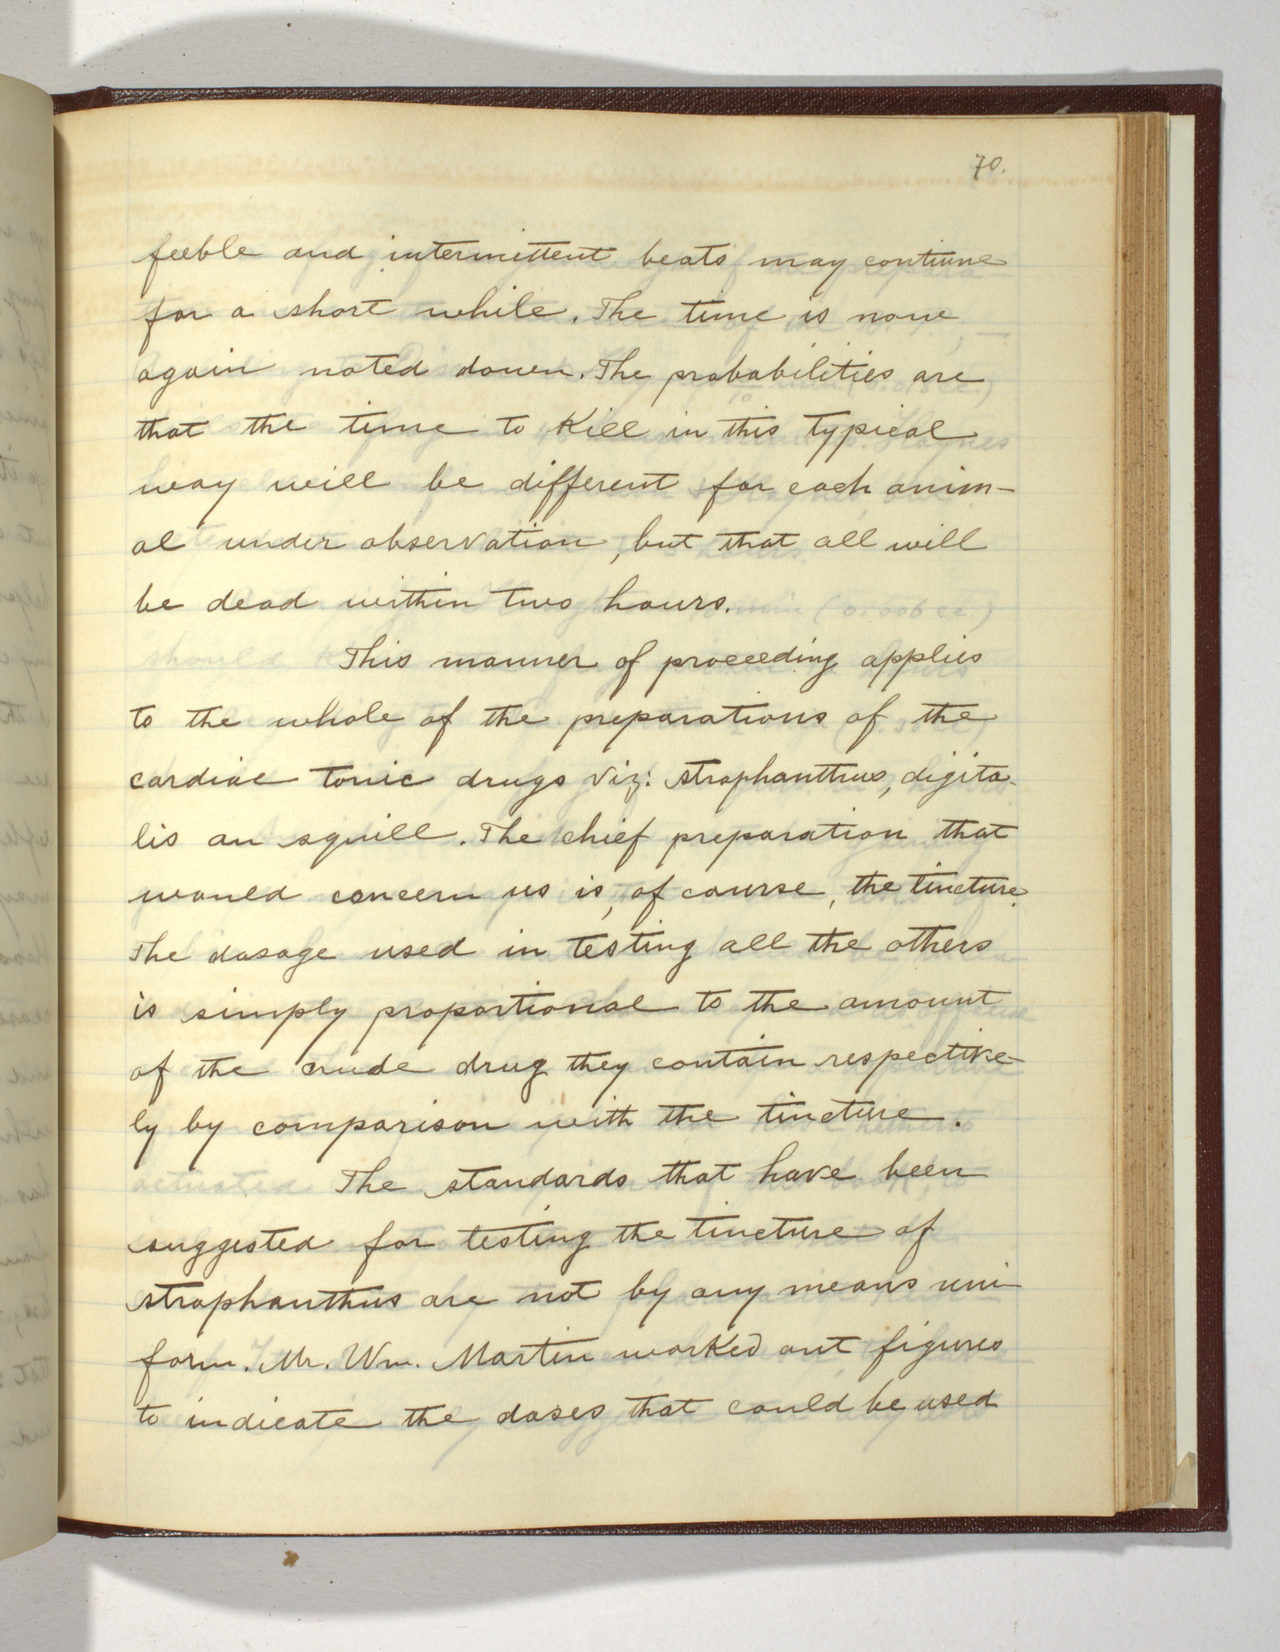 70.
feeble and intermittent beats may continue
for a short while. The time is now
again noted down. The probabilities are
that the time to kill in this typical
way will be different for each anim-
al under observation, but that all will
be dead within two hours.
This manner of proceeding applies
to the whole of the preparations of the
cardiac tonic drugs viz: strophanthus, digita-
lis an squill. The chief preparation that
would concern us is, of course, the tincture.
The dosage used in testing all the others
is simply proportional to the amount
of the crude drug they contain respective-
ly by comparison with the tincture.
The standards that have been
suggested for testing the tincture of
strophanthus are not by any means uni-
form. Mr. Wm. Martin worked out figures
to indicate the doses that could be used